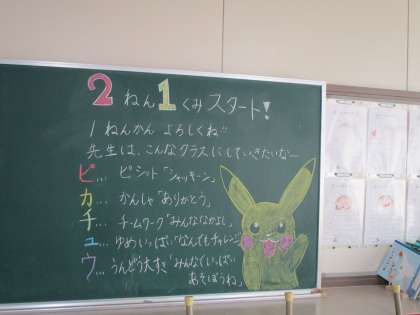 2ねん1くみスタート!
1ねんかん よろしくね
先生は、こんなクラスにしていきたいなー
ピ… ピシット「シャッキーン」
カ… かんしゃ「ありがとう」
チ… チームワーク「みんななかよし」
ュ… ゆめいっぱい「なんでもチャレンジ」
ウ… うんどう大すき「みんなでいっぱい
あそぼうね」